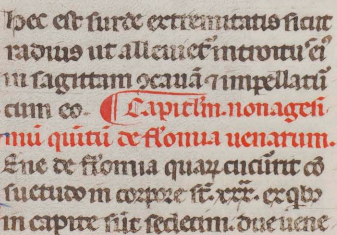 hec est surde extremitatis sicut
radius ut alleuiet᷒ introitus ei᷒
in sagittam ꝯcauā ⁊ impellatū
cum eo. Capitl̄m. nonagesi-
mū quītū de fl̄omia uenarum.
Ene de fl̄omia quaꝝ cucurrit cō
suetudo in corpore st̄. xxx. ex qbꝫ
in capite sūt sedecim. due uene